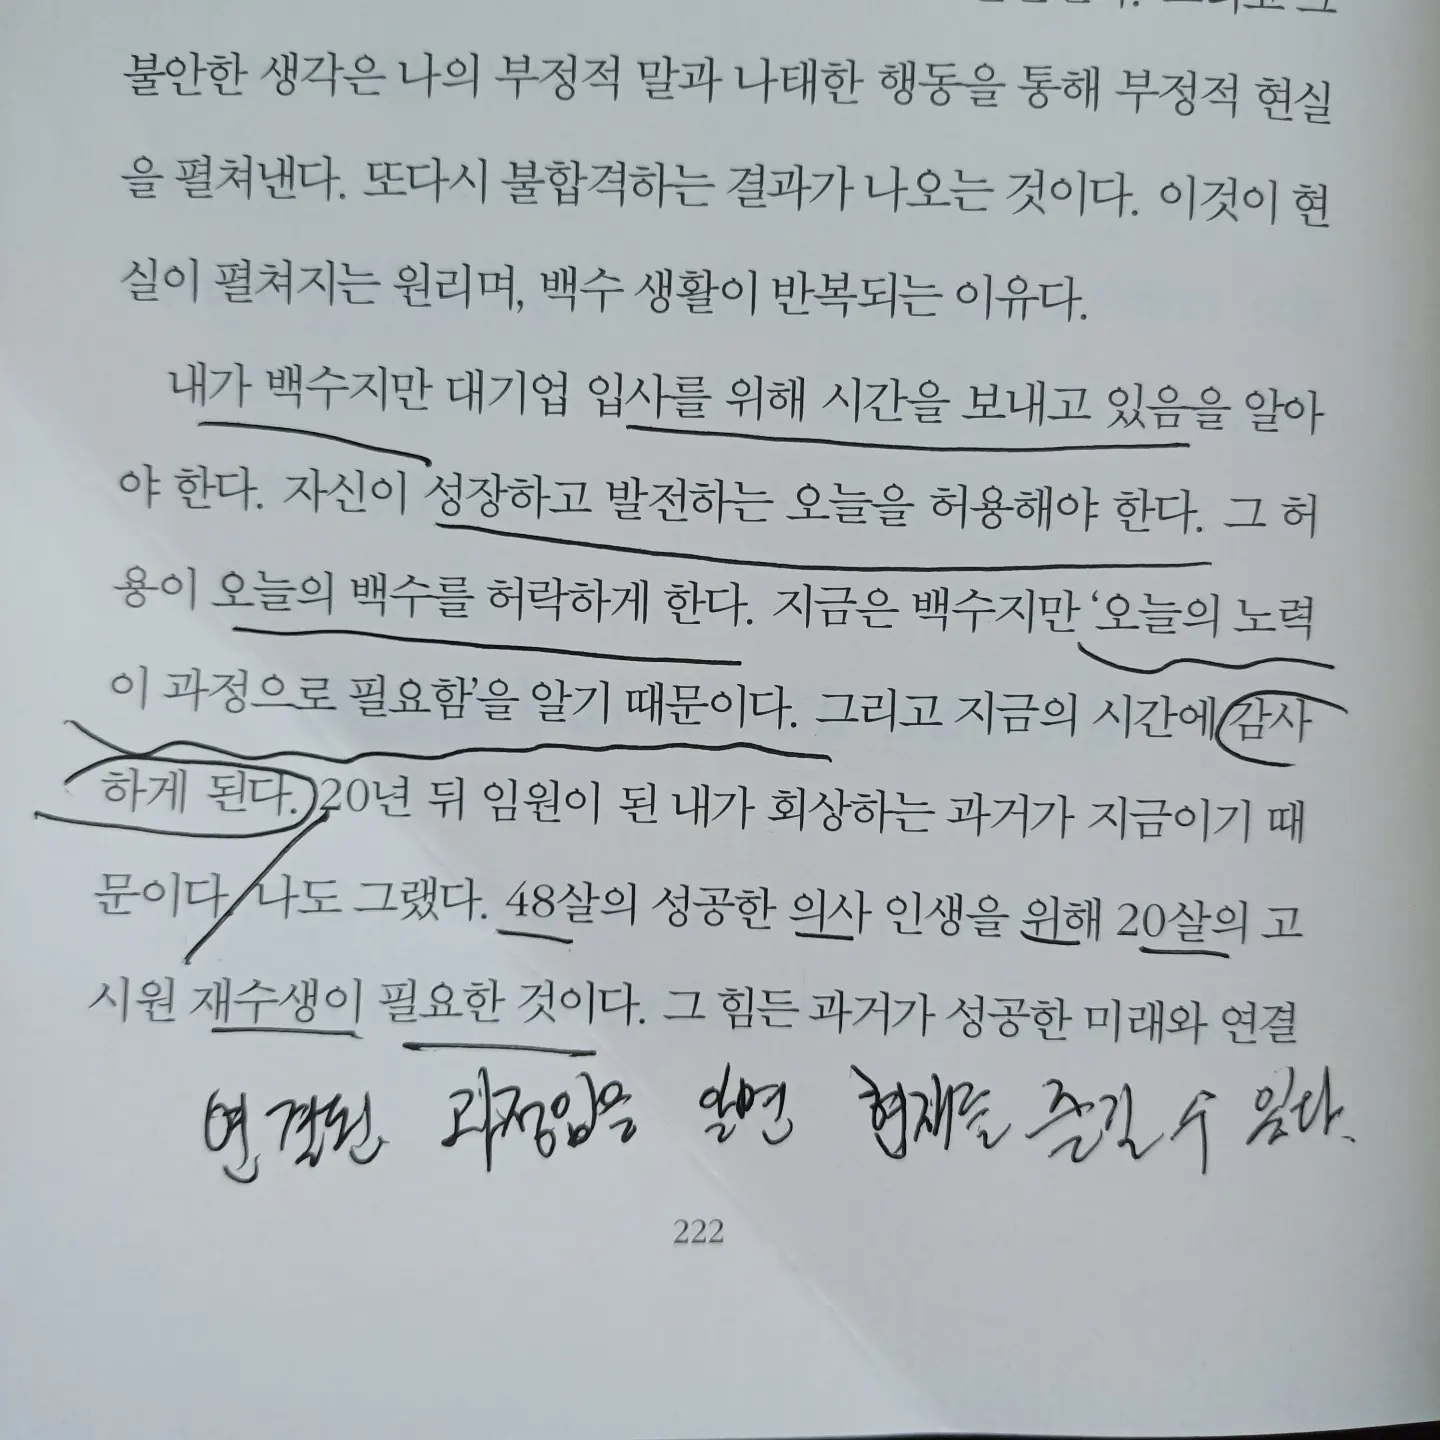 그리고 그
불안한 생각은 나의 부정적 말과 나태한 행동을 통해 부정적 현실
을 펼쳐낸다. 또다시 불합격하는 결과가 나오는 것이다. 이것이 현
실이 펼쳐지는 원리며, 백수 생활이 반복되는 이유다.
내가 백수지만 대기업 입사를 위해 시간을 보내고 있음을 알아
야 한다. 자신이 성장하고 발전하는 오늘을 허용해야 한다. 그 허
용이 오늘의 백수를 허락하게 한다. 지금은 백수지만 ‘오늘의 노력
이 과정으로 필요함’을 알기 때문이다. 그리고 지금의 시간에 감사
하게 된다. 20년 뒤 임원이 된 내가 회상하는 과거가 지금이기 때
문이다. 나도 그랬다. 48살의 성공한 의사 인생을 위해 20살의 고
시원 재수생이 필요한 것이다. 그 힘든 과거가 성공한 미래와 연결
연결된 과정임을 알면 현재를 즐길 수 있다.
222